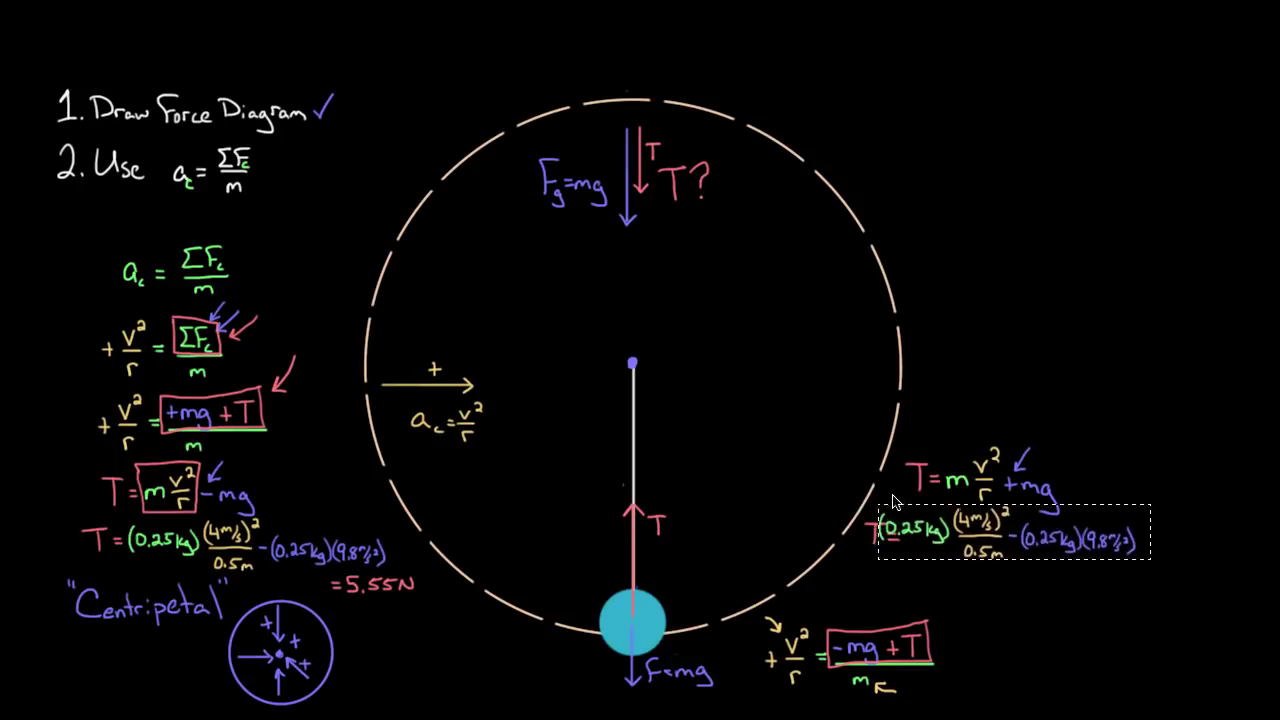 1. Draw Force Diagram ✓
2. Use a_c = ΣF_c / m
a_c = ΣF_c / m
+ v² / r = ΣF_c / m
+ v² / r = +mg + T / m
T = m v² / r - mg
T = (0.25kg) (4m/s)² / 0.5m - (0.25kg)(9.8m/s²)
= 5.55N
"Centripetal"
+
+
+
F_g = mg
T
T?
+
a_c = v² / r
T
F=mg
T = m v² / r + mg
T = (0.25kg) (4m/s)² / 0.5m - (0.25kg)(9.8m/s²)
+ v² / r = -mg + T / m